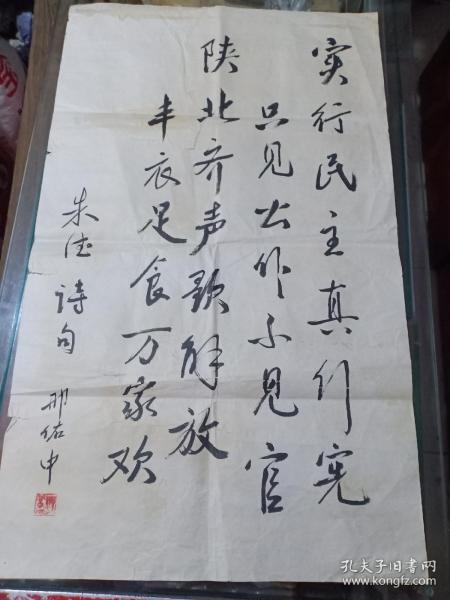 实行民主真行宪
只见公仆不见官
陕北齐声歌解放
丰衣足食万家欢
朱德 詩句 邢佑中
孔夫子旧书网
www.kongfz.com